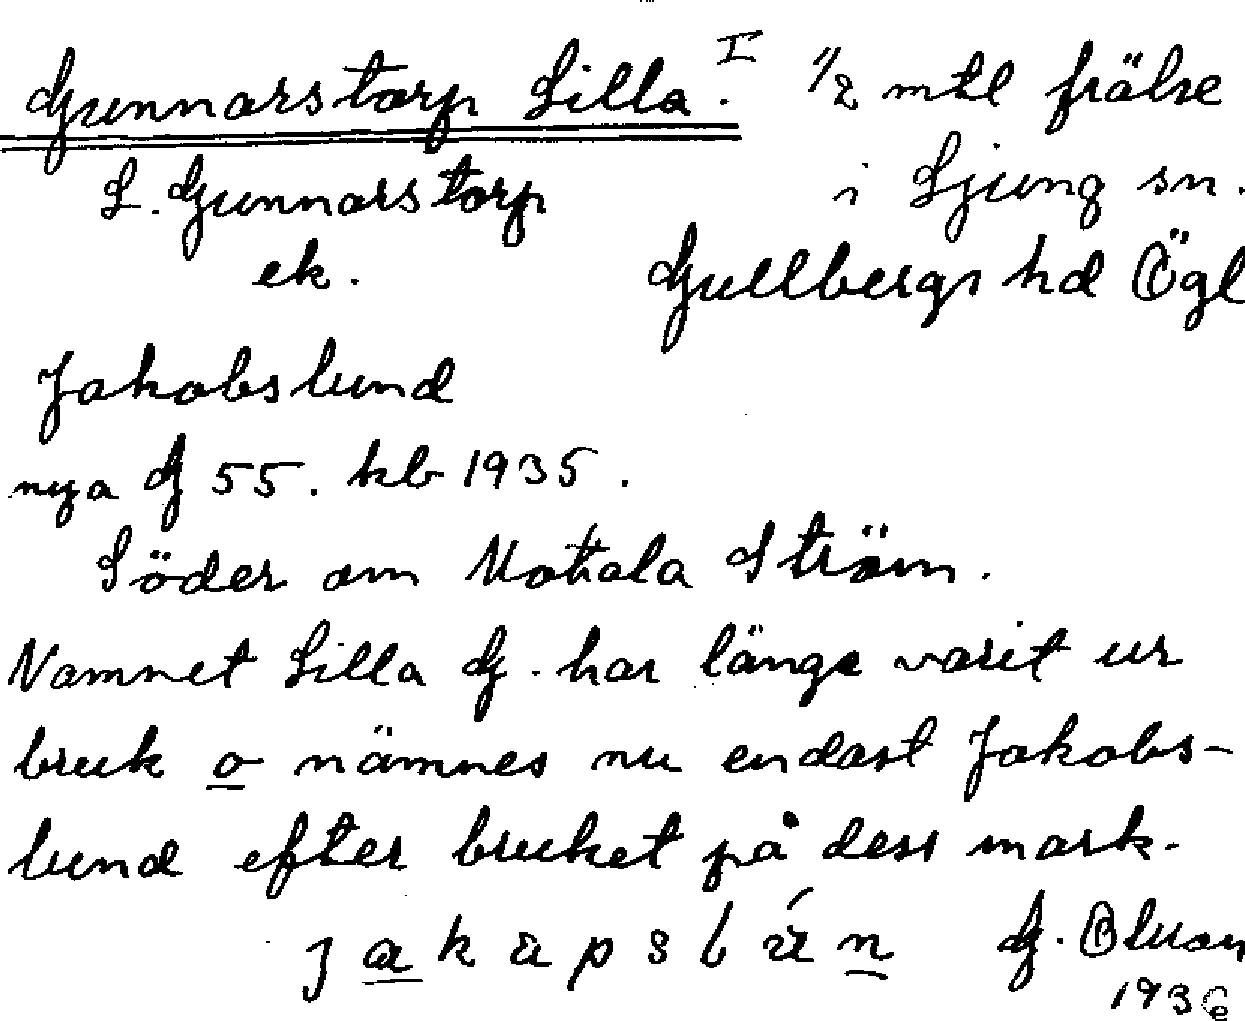 Gunnarstorp Lilla. I 1/2 mtl frälse
L. Gunnarstorp i Ljung sn.
ek. Gullbergs hd Ögl
Jakobslund
nya G 55. kb 1935.
Söder om Motala Ström.
Namnet Lilla G. har länge varit ur
bruk o nämnes nu endast Jakobs-
lund efter bruket på dess mark.
G. Olsson
1936